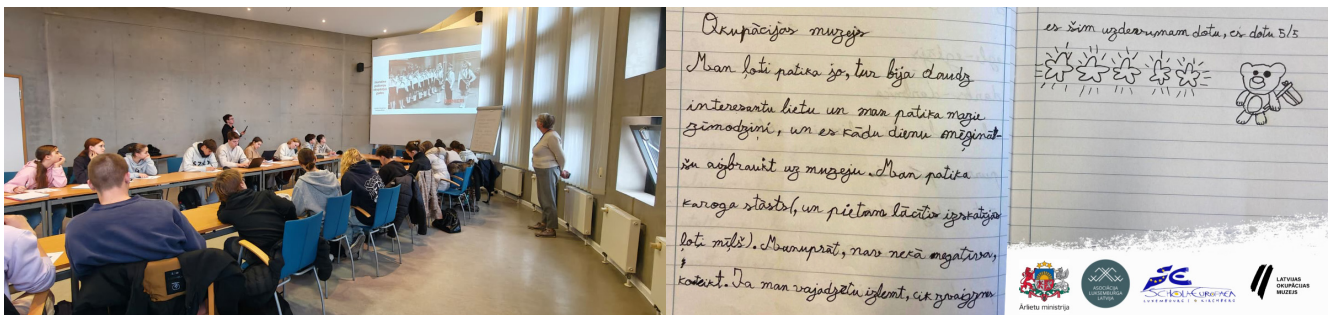 Okupācijas muzejs
Man ļoti patika jo, tur bija daudz
interesantu lietu un man patika mazie
zīmodziņi, un es kādu dienu mēģināt-
šu aizbraukt uz muzeju. Man patika
karoga stāsts(, un pietam lācītis izskatījās
ļoti mīļš). Manuprāt, nav nekā negatīva,
ko teikt. Ja man vajadzētu izlemt, cik zvaigznes
es šim uzdevumam dotu, es dotu 5/5
Ārlietu ministrija
ASOCIĀCIJA
LUKSEMBURGA
LATVIJA
SCHOLA EUROPAEA
LATVIJAS
OKUPĀCIJAS
MUZEJS